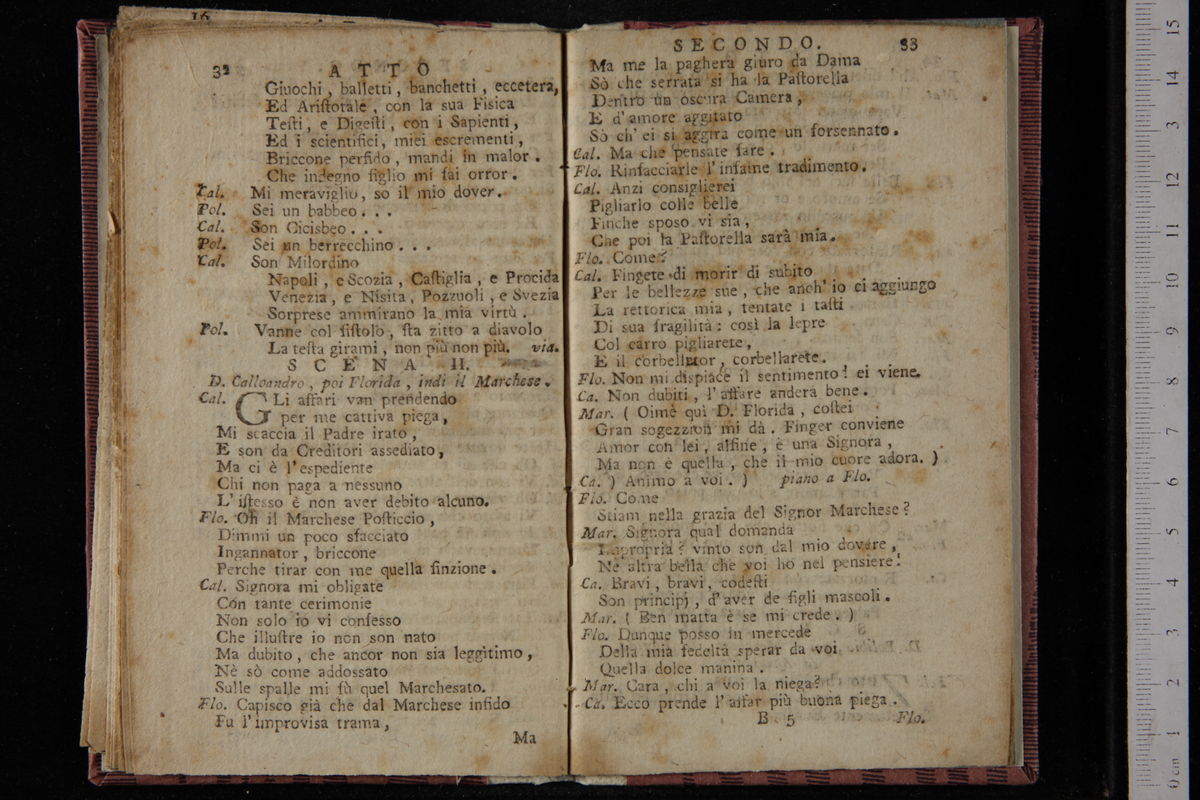 32 ATTO
Giuochi, balletti, banchetti, eccetera,
Ed Ariſtotale, con la sua Fisica
Teſti, e Digeſti, con i Sapienti,
Ed i scientifici, miei escrementi,
Briccone perfido, mandi in malor.
Che indegno figlio mi fai orror.
Cal. Mi meraviglio, so il mio dover.
Pol. Sei un babbeo...
Cal. Son Cicisbeo...
Pol. Sei un berrecchino...
Cal. Son Milordino
Napoli, e Scozia, Caſtiglia, e Procida
Venezia, e Nisita, Pozzuoli, e Svezia
Sorprese ammirano la mia virtù.
Pol. Vanne col fiſtolo, ſta zitto a diavolo
La teſta girami, non più non più. via.
SCENA II.
D. Calloandro, poi Florida, indi il Marchese.
Cal. GLi affari van prendendo
per me cattiva piega,
Mi scaccia il Padre irato,
E son da Creditori assediato,
Ma ci è l'espediente
Chi non paga a nessuno
L' iſtesso è non aver debito alcuno.
Flo. Oh il Marchese Poſticcio,
Dimmi un poco sfacciato
Ingannator, briccone
Perche tirar con me quella finzione.
Cal. Signora mi obligate
Con tante cerimonie
Non solo io vi confesso
Che illuſtre io non son nato
Ma dubito, che ancor non sia leggitimo,
Nè sò come addossato
Sulle spalle mi fù quel Marchesato.
Flo. Capisco già che dal Marchese infido
Fu l'improvisa trama,
Ma
SECONDO. 33
Ma me la pagherà giuro da Dama
Sò che serrata si ha la Paſtorella
Dentro un oscura Camera,
E d'amore aggitato
Sò ch' ei si aggira come un forsennato.
Cal. Ma che pensate fare.
Flo. Rinfacciarle l'infame tradimento.
Cal. Anzi consiglierei
Pigliarlo colle belle
Finche sposo vi sia,
Che poi la Paſtorella sarà mia.
Flo. Come?
Cal. Fingete di morir di subito
Per le bellezze sue, che anch' io ci aggiungo
La rettorica mia, tentate i taſti
Di sua fragilità: così la lepre
Col carro pigliarete,
E il corbellator, corbellarete.
Flo. Non mi dispiace il sentimento! ei viene.
Ca. Non dubiti, l'affare anderà bene.
Mar. (Oimè quì D. Florida, coſtei
Gran sogezzion mi dà. Finger conviene
Amor con lei, alfine, è una Signora,
Ma non è quella, che il mio cuore adora.)
Ca. ) Animo a voi. ) piano a Flo.
Flo. Come
Stiam nella grazia del Signor Marchese?
Mar. Signora qual domanda
Impropria? vinto son dal mio dovere,
Nè altra bella che voi ho nel pensiere.
Ca. Bravi, bravi, codeſti
Son principj, d'aver de figli mascoli.
Mar. (Ben matta è se mi crede.)
Flo. Dunque posso in mercede
Della mia fedeltà sperar da voi
Quella dolce manina.
Mar. Cara, chi a voi la niega?
Ca. Ecco prende l'affar più buona piega.
B 5 Flo.